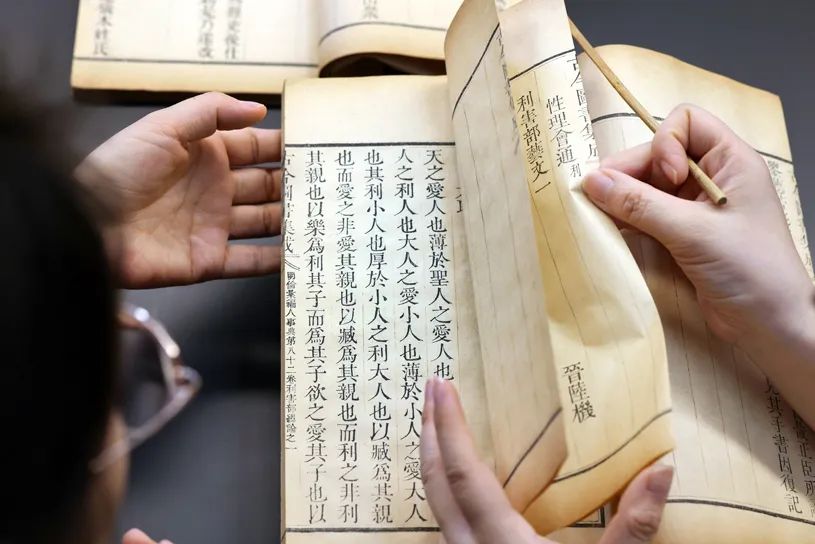 其手書因復記
古今圖書集成
性理會通 利
利害部藝文一
晉陸機
天之愛人也薄於聖人之愛人也
人之利人也大人之愛小人也薄於小人之愛大人
也其利小人也厚於小人之利大人也以臧爲其親
也而愛之非愛其親也以臧爲其親也而利之非利
其親也以樂爲利其子而爲其子欲之愛其子也以
古今圖書集成 明倫彙編人事典第八十二卷利害部總論之一